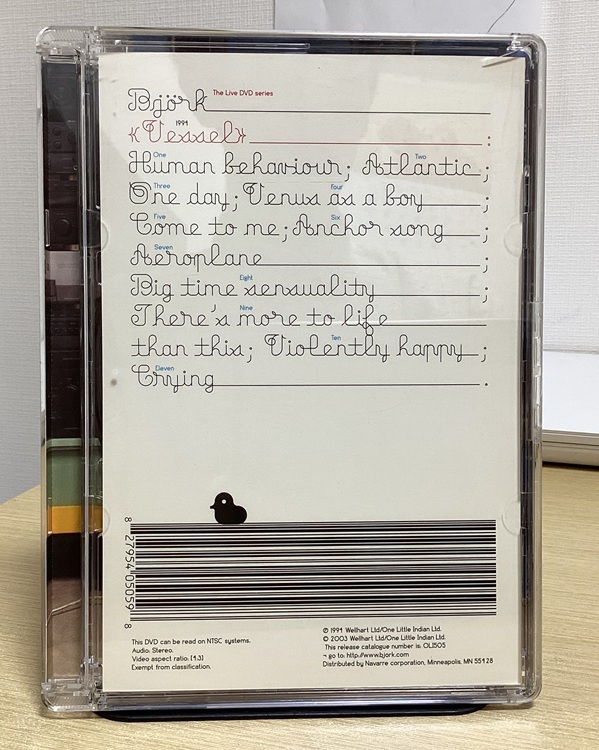 Björk The Live DVD series
1994
«Vessel» :
One Two
Human behaviour; Atlantic ;
Three Four
One day; Venus as a boy ;
Five Six
Come to me; Anchor song ;
Seven
Aeroplane ;
Eight
Big time sensuality ;
Nine
There's more to life
Ten
than this; Violently happy ;
Eleven
Crying .
8 27954 05059 8
This DVD can be read on NTSC systems.
Audio: Stereo.
Video aspect ratio: [4:3]
Exempt from classification.
℗ 1994 Wellhart Ltd/One Little Indian Ltd.
© 2003 Wellhart Ltd/One Little Indian Ltd.
This release catalogue number is: OLI505
¬ go to: http://www.bjork.com
Distributed by Navarre corporation, Minneapolis, MN 55428